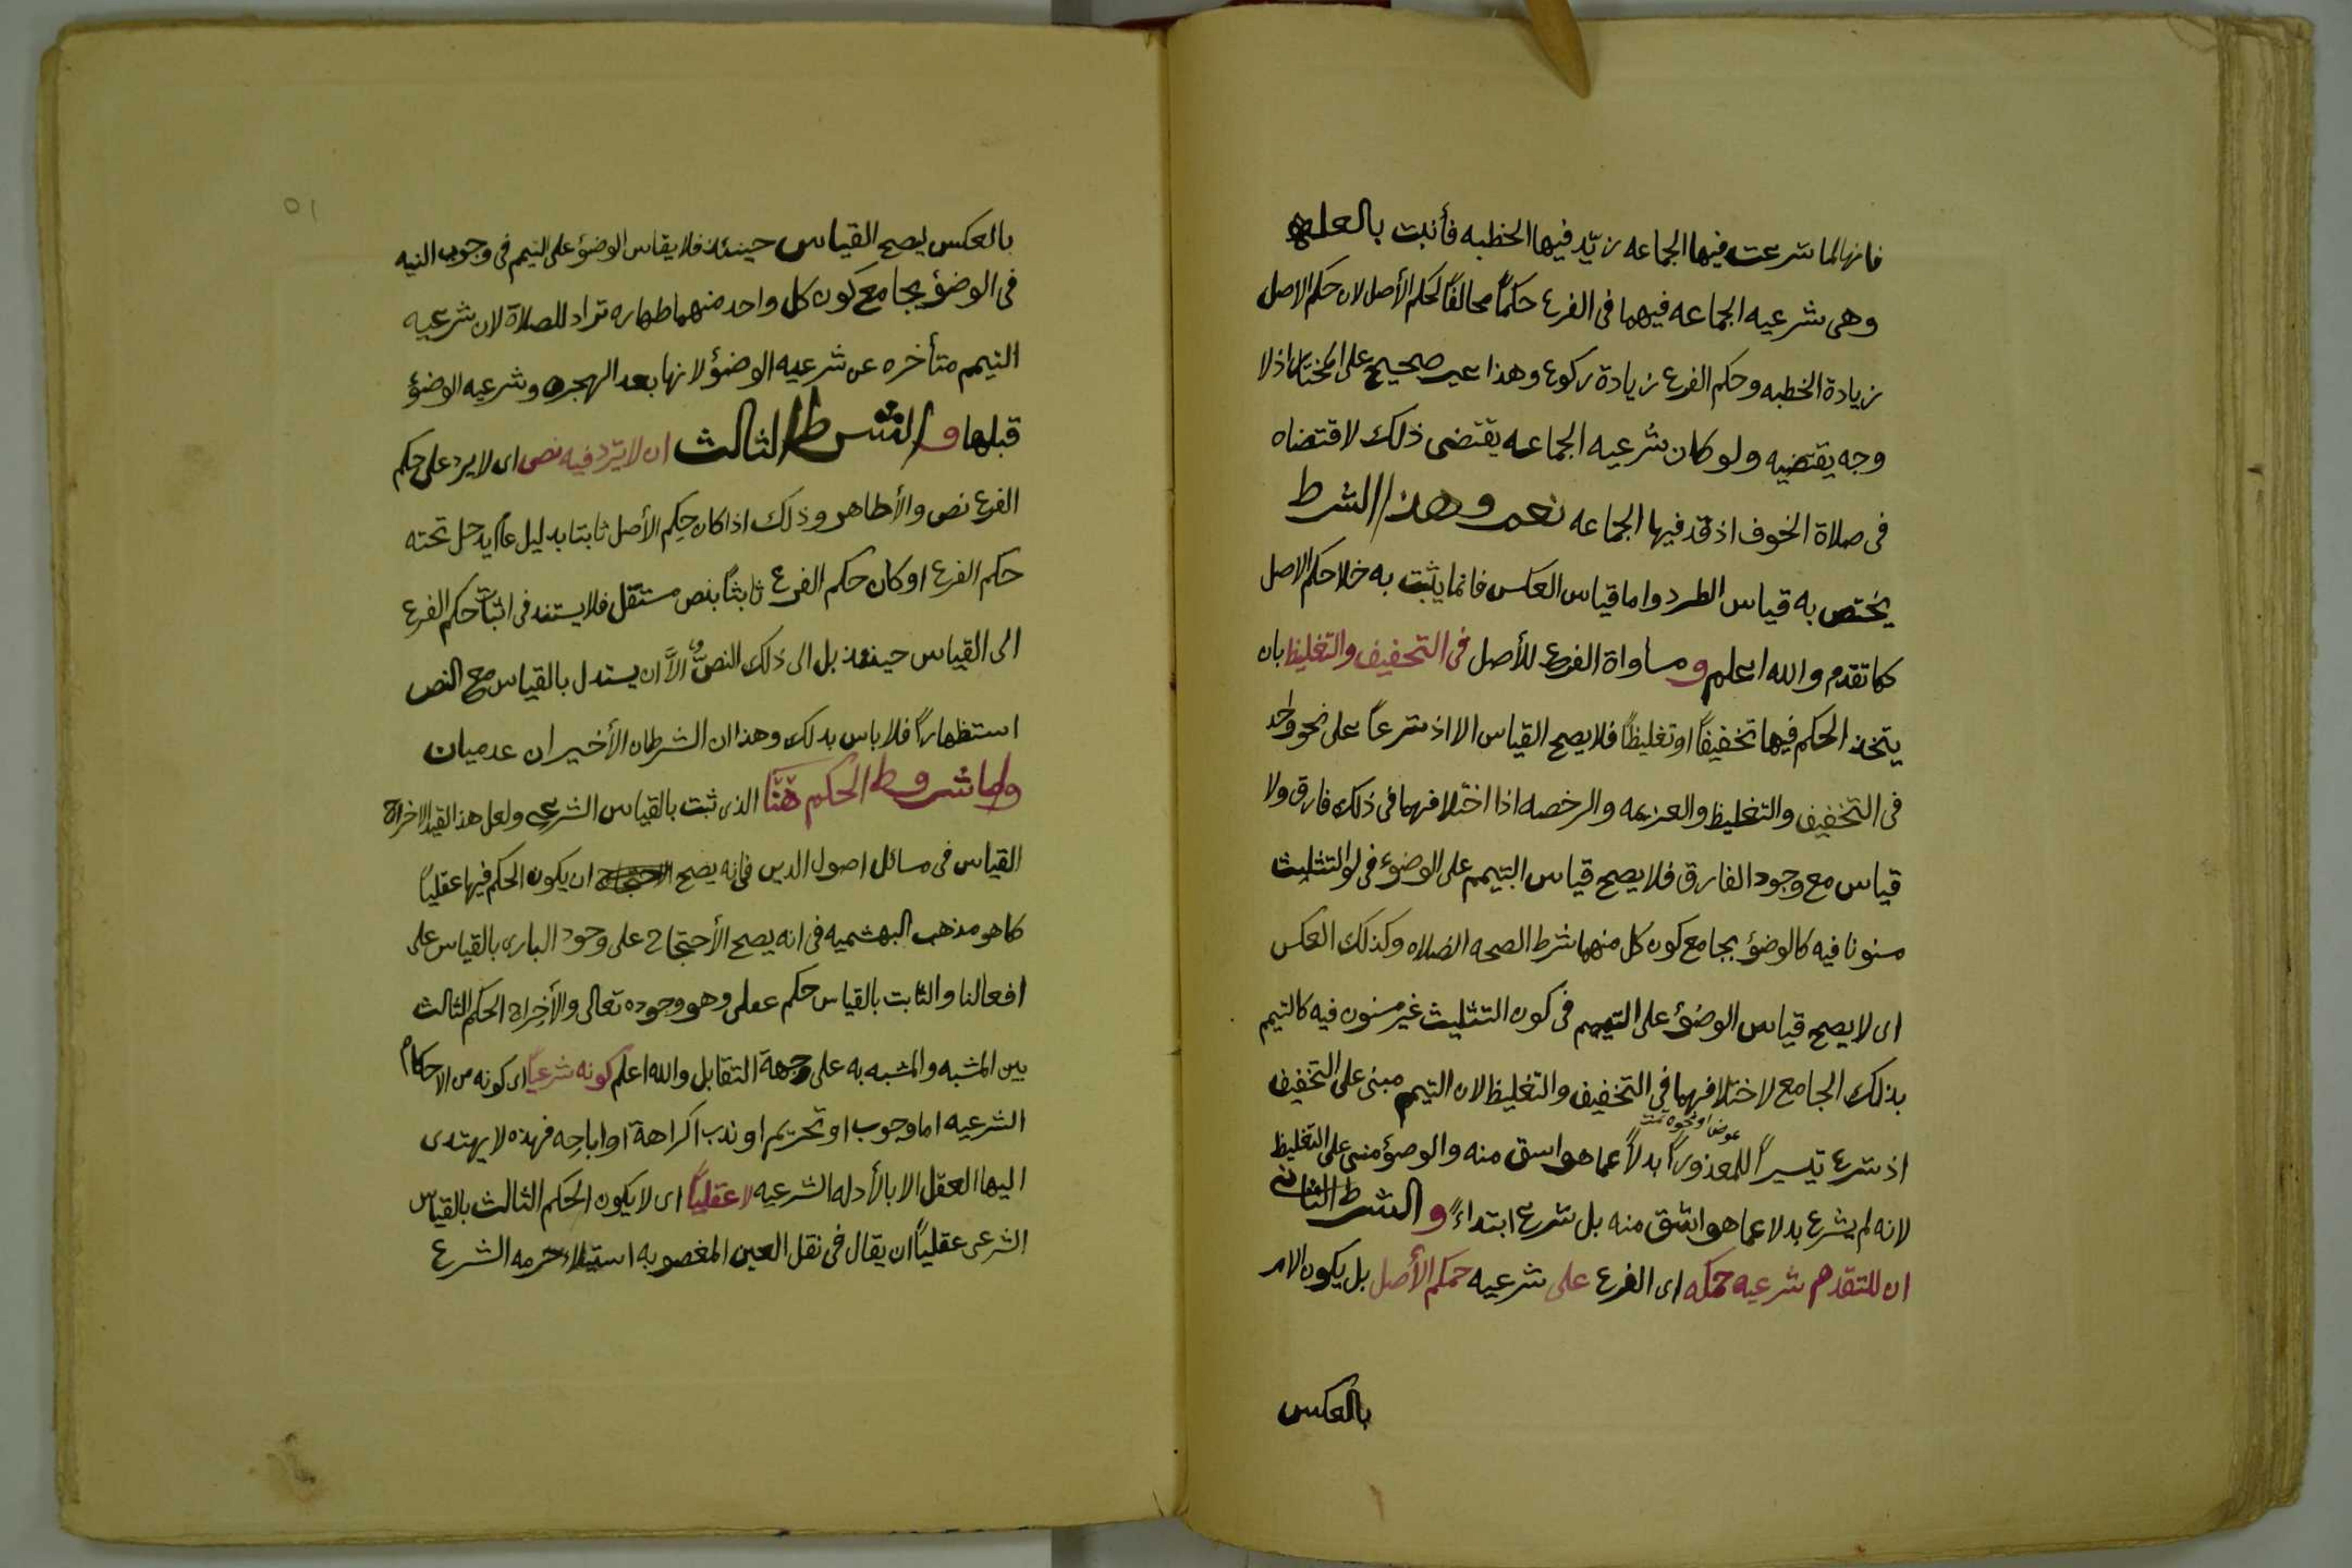 فانها لما شرعت فيها الجماعه زيّد فيها الخطبه فأثبت بالعله
وهى شرعيه الجماعه فيهما فى الفرع حكماً مخالفاً لحكم الأصل لان حكم الاصل
زيادة الخطبه وحكم الفرع زيادة ركوع وهذا غير صحيح على المختار اذ لا
وجه يقتضيه ولو كان شرعيه الجماعه يقتضى ذلك لاقتضاه
فى صلاة الخوف اذ قد فيها الجماعه نعم وهذا الشرط
يختص به قياس الطرد واما قياس العكس فانما يثبت به خلا حكم الاصل
كما تقدم والله اعلم و مساواة الفرع للأصل فى التخفيف والتغليظ بان
يتخذ الحكم فيها تخفيفاً او تغليظاً فلا يصح القياس الا اذ شرعاً على نحو واحد
فى التخفيف والتغليظ والعزيمه والرخصه اذا اختلافهما فى ذلك فارق ولا
قياس مع وجود الفارق فلا يصح قياس التيمم على الوضوء فى لو التثليث
مسنونا فيه كالوضؤ بجامع كون كل منهما شرط الصحه الصلاه وكذلك العكس
اى لا يصح قياس الوضؤ على التيمم فى كون التثليث غير مسنون فيه كالتيمم
بذلك الجامع لاختلافهما فى التخفيف والتغليظ لان التيمم مبنى على التخفيف
عوضا او نحوه تمت
اذ شرع تيسيراً للمعذور بدلاً عما هو اسق منه والوضؤ مبنى على التغليظ
لانه لم يشرع بدلا عما هو اشق منه بل شرع ابتداءً و الشرط الثانى
ان للتقدم شرعيه حكمه اى الفرع على شرعيه حكم الأصل بل يكون الامر
بالعكس
٥١
بالعكس ليصح القياس حينئذ فلا يقاس الوضؤ على التيمم فى وجوب النيه
فى الوضؤ بجامع كون كل واحد منهما طهاره تراد للصلاة لان شرعيه
التيمم متأخره عن شرعيه الوضؤ لانها بعد الهجره وشرعيه الوضؤ
قبلها و الشرط الثالث ان لا يرد فيه نص اى لا يرد على حكم
الفرع نص والأظاهر وذلك اذا كان حكم الأصل ثابتا بدليل عام يدخل تحته
حكم الفرع او كان حكم الفرع ثابتاً بنص مستقل فلا يستند فى اثبات حكم الفرع
الى القياس حينئذ بل الى ذلك النص الاَّ ان يستدل بالقياس مع النص
استظهاراً فلا باس بذلك وهذان الشرطان الأخيران عدميان
واما شروط الحكم هنا الذى ثبت بالقياس الشرعى ولعل هذ القيد لاخراج
القياس فى مسائل اصول الدين فإنه يصح ان يكون الحكم فيها عقلياً
كما هو مذهب البهشميه فى انه يصح الأحتجاج على وجود البارى بالقياس على
افعالنا والثابت بالقياس حكم عقلى وهو وجوده تعالى والأخراج الحكم الثالث
بين المشبه والمشبه به على وجهة التقابل والله اعلم كونه شرعياً اى كونه من الاحكام
الشرعيه اما وجوب او تحريم او ندب اكراهة او اباحه فهذه لا يهتدى
اليها العقل الا بالأدله الشرعيه لا عقلياً اى لا يكون الحكم الثالث بالقياس
الشرعى عقلياً ان يقال فى نقل العين المغصوبه استيلاء حرمه الشرع